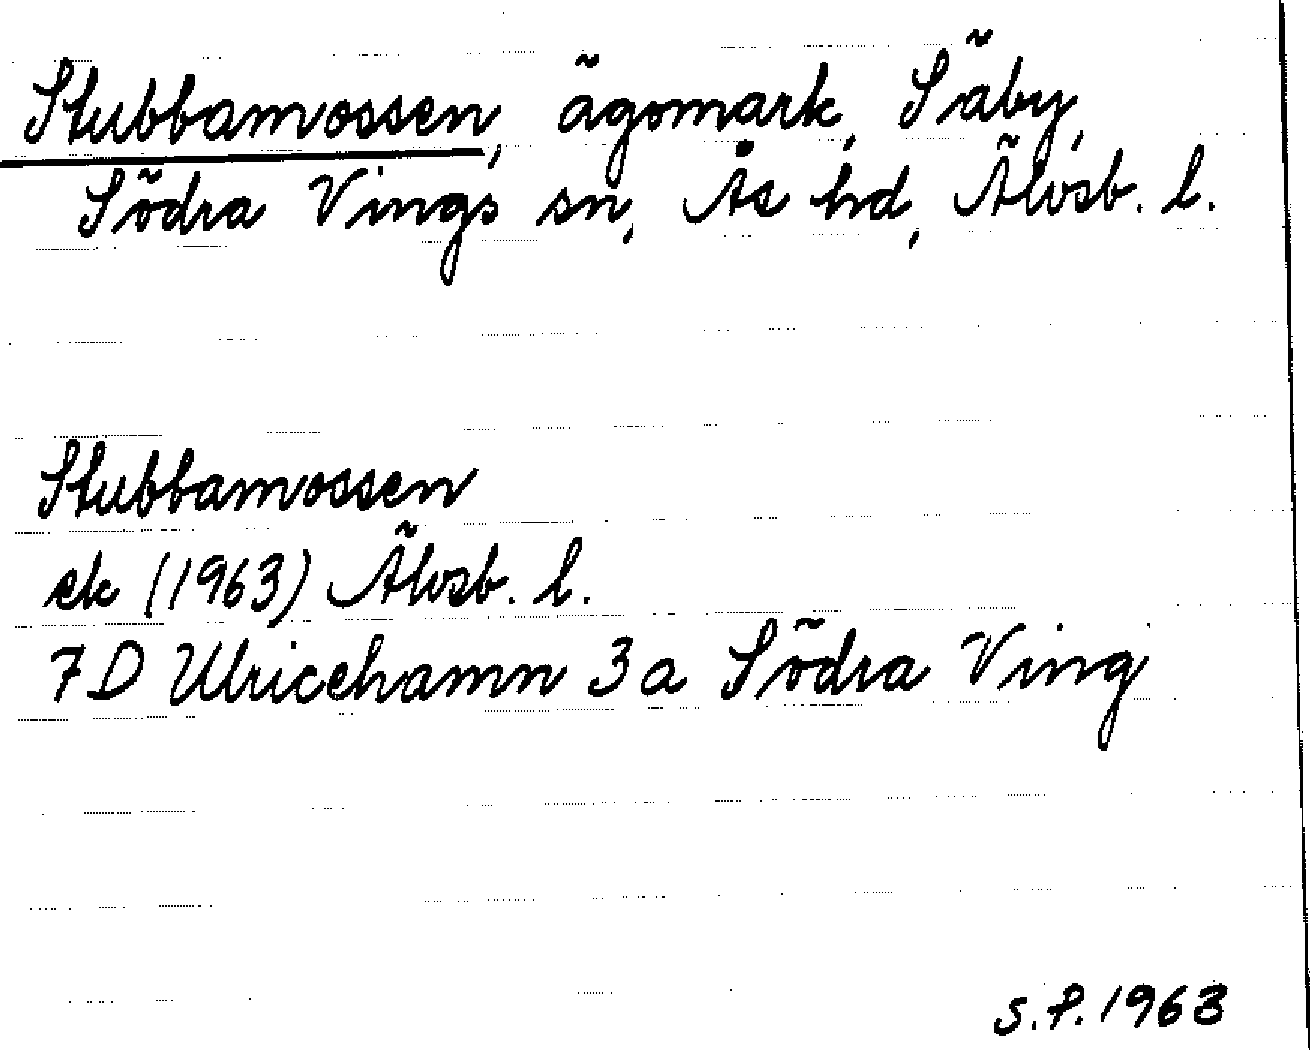 Stubbamossen, ägomark, Säby,
Södra Vings sn, Ås hd, Älvsb. l.
Stubbamossen
ek (1963) Älvsb. l.
7D Ulricehamn 3a Södra Ving
S.P. 1963